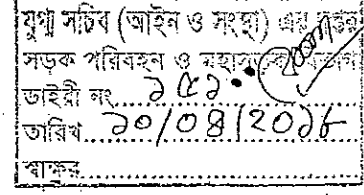 যুগ্ম সচিব (আইন ও সংস্থা) এর দপ্তর
সড়ক পরিবহন ও মহাসড়ক বিভাগ
ডাইরী নং ১৫১
তারিখ ১০/০৪/২০১৮
স্বাক্ষর